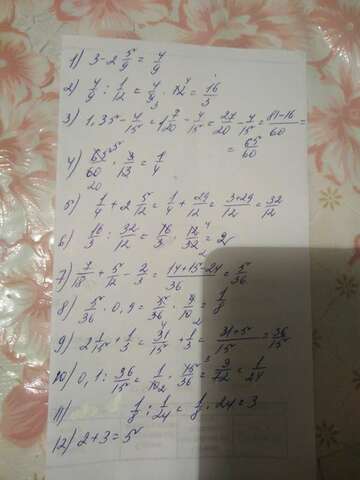 1) 3-2 5/9 = 4/9
2) 4/9 : 1/12 = 4/9 · 12/1 = 16/3
3) 1,35 - 4/15 = 1 7/20 - 4/15 = 27/20 - 4/15 = 81-16/60 =
= 65/60
4) 65/60 · 3/13 = 1/4
5) 1/4 + 2 5/12 = 1/4 + 29/12 = 3+29/12 = 32/12
6) 16/3 : 32/12 = 16/3 · 12/32 = 2
7) 7/18 + 5/12 - 2/3 = 14+15-24/36 = 5/36
8) 5/36 · 0,9 = 5/36 · 9/10 = 1/8
9) 2 1/15 + 1/3 = 31/15 + 1/3 = 31+5/15 = 36/15
10) 0,1 : 36/15 = 1/10 · 15/36 = 1/24
11) 1/8 : 1/24 = 1/8 · 24 = 3
12) 2+3=5